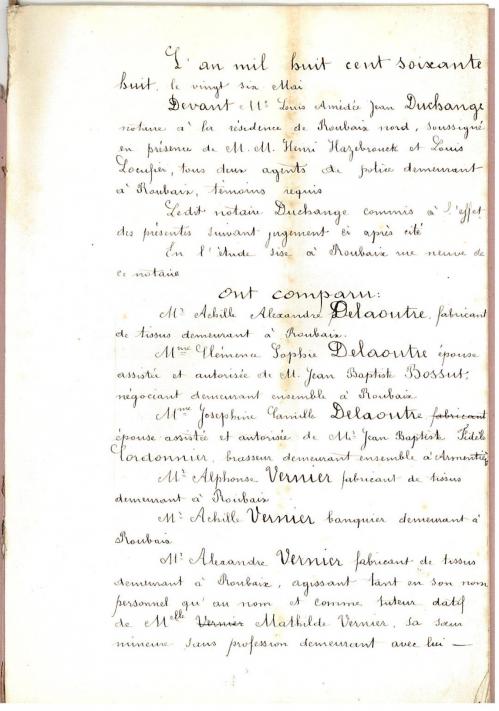 L'an mil huit cent soixante
huit, le vingt six Mai
Devant Me Louis Amédée Jean Duchange
notaire à la résidence de Roubaix nord, soussigné
en présence de M.M. Henri Hazebrouck et Louis
Locufier, tous deux agents de police demeurant
à Roubaix, témoins requis
Ledit notaire Duchange commis à l'effet
des présentes suivant jugement ci après cité
En l'étude sise à Roubaix rue neuve de
ce notaire
Ont comparu:
Mr Achille Alexandre Delaoutre, fabricant
de tissus demeurant à Roubaix.
Mme Clémence Sophie Delaoutre épouse
assistée et autorisée de M. Jean Baptiste Bossut,
négociant demeurant ensemble à Roubaix
Mme Joséphine Camille Delaoutre fabricant
épouse assistée et autorisée de Mr Jean Baptiste Fidèle
Cordonnier, brasseur demeurant ensemble à Armentières
Mr Alphonse Vernier fabricant de tissus
demeurant à Roubaix
Mr Achille Vernier banquier demeurant à
Roubaix
Mr Alexandre Vernier fabricant de tissus
demeurant à Roubaix, agissant tant en son nom
personnel qu'au nom et comme tuteur datif
de Melle Vernier Mathilde Vernier, sa sœur
mineure sans profession demeurant avec lui —